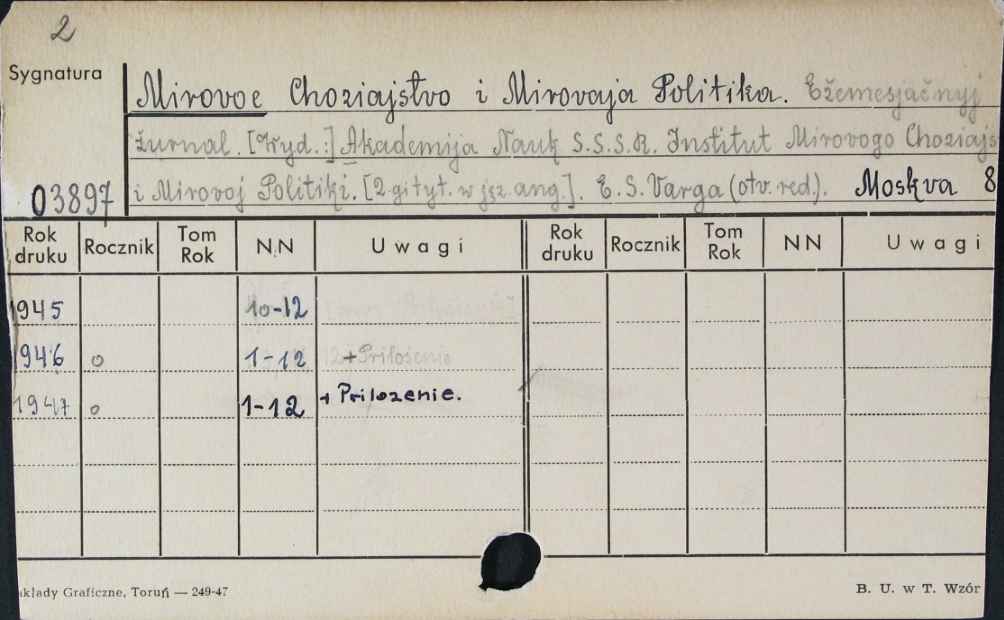 2
Sygnatura
Mirovoe Choziajstvo i Mirovaja Politika. Ežemesjačnyj
žurnal. [Wyd.:] Akademija Nauk S.S.S.R. Institut Mirovogo Choziajs
03897 i Mirovoj Politiki. [2-gi tyt. w jęz. ang.]. E. S. Varga (otv. red.). Moskva 8
Rok druku Rocznik Tom Rok N.N Uwagi Rok druku Rocznik Tom Rok NN Uwagi
1945 10-12
1946 o 1-12 12+Priloženie
1947 o 1-12 + Prilozenie.
akłady Graficzne, Toruń — 249-47 B. U. w T. Wzór